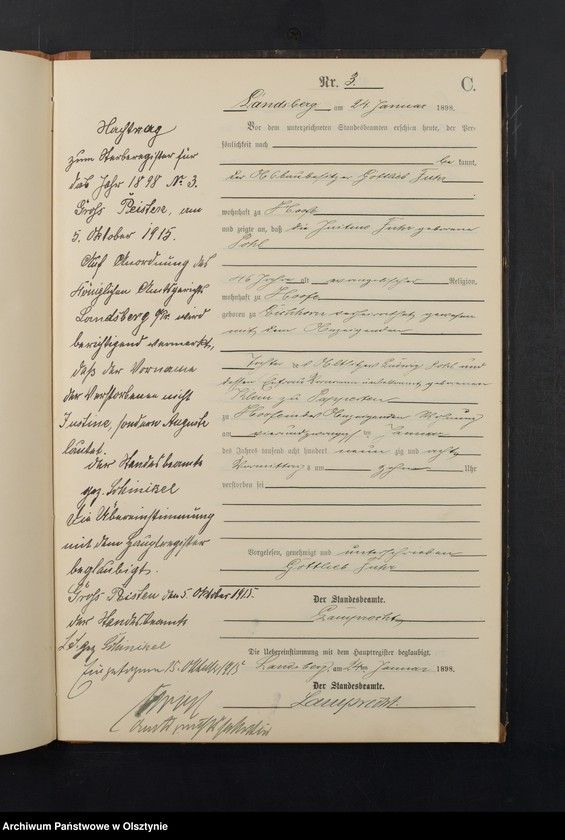 Nr. 3.
C.
Landsberg am 24 Januar 1898.
Vor dem unterzeichneten Standesbeamten erschien heute, der Per-
sönlichkeit nach
be kannt,
der Gottlieb Fuhr
wohnhaft zu Hoofe
und zeigte an, daß die Justine Fuhr geborene
Pohl
46 Jahre alt evangelischer Religion,
wohnhaft zu Hoofe
geboren zu Eichhorn verheirathet gewesen
mit dem Anzeigenden
Tochter des Ludwig Pohl und
dessen Ehefrau Vorname unbekannt geborenen
Klein zu
zu Hoofe in des Anzeigenden Wohnung
am vierundzwanzigsten Januar
des Jahres tausend acht hundert neun zig und acht
Vormittags um zehn Uhr
verstorben sei
Vorgelesen, genehmigt und unterschrieben
Gottlieb Fuhr
Der Standesbeamte.
Lamprecht
Die Uebereinstimmung mit dem Hauptregister beglaubigt.
Landsberg, am 24ten Januar 1898.
Der Standesbeamte.
Lamprecht.
Nachtrag
zum Sterberegister für
das Jahr 1898 No 3.
Groß Peisten, am
5. Oktober 1915.
Auf Anordnung des
Königlichen Amtsgerichts
Landsberg O/Pr. wird
berichtigend vermerkt,
daß der Vorname
der Verstorbenen nicht
Justine, sondern Auguste
lautet.
Der Standesbeamte
gez. Schinkel
Die Übereinstimmung
mit dem Hauptregister
beglaubigt.
Groß Peisten den 5. Oktober 1915.
Der Standesbeamte
gez Schinkel
Eingetragen 15. Oktober 1915
Archiwum Państwowe w Olsztynie